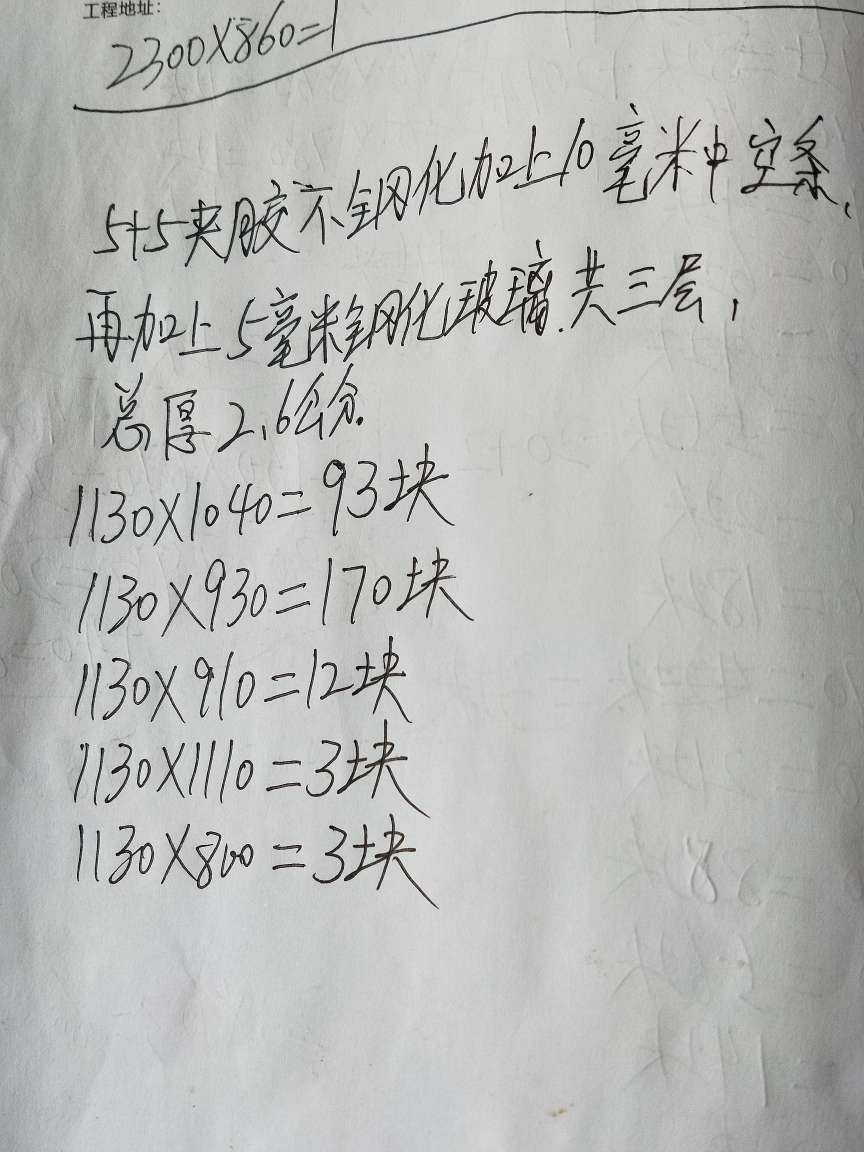 工程地址:
2300×860=1
5+5夹胶不钢化加上10毫米中空条、
再加上5毫米钢化玻璃.共三层,
总厚2.6公分.
1130×1040=93块
1130×930=170块
1130×910=12块
1130×1110=3块
1130×800=3块